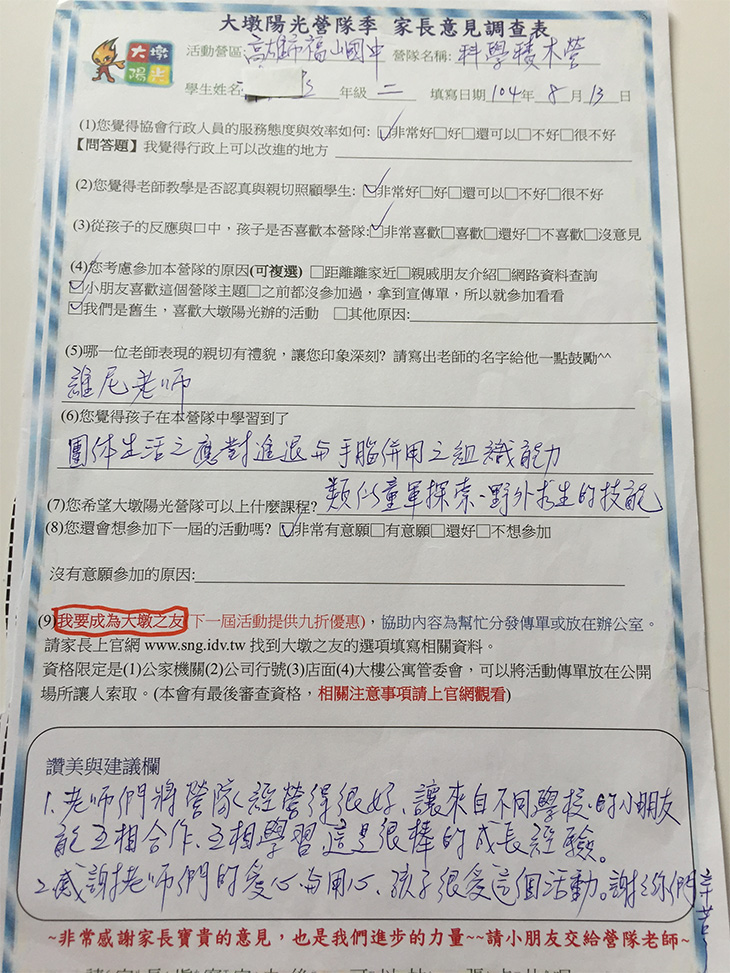 大墩陽光營隊季 家長意見調查表
大墩
陽光
活動營區:高雄市福山國中 營隊名稱:科學積木營
學生姓名 年級 二 填寫日期 104年 8月 13日
(1)您覺得協會行政人員的服務態度與效率如何:☑非常好□好□還可以□不好□很不好
【問答題】我覺得行政上可以改進的地方
(2)您覺得老師教學是否認真與親切照顧學生:☑非常好□好□還可以□不好□很不好
(3)從孩子的反應與口中,孩子是否喜歡本營隊:☑非常喜歡□喜歡□還好□不喜歡□沒意見
(4)您考慮參加本營隊的原因(可複選) □距離離家近□親戚朋友介紹□網路資料查詢
☑小朋友喜歡這個營隊主題□之前都沒參加過,拿到宣傳單,所以就參加看看
☑我們是舊生,喜歡大墩陽光辦的活動 □其他原因:
(5)哪一位老師表現的親切有禮貌,讓您印象深刻? 請寫出老師的名字給他一點鼓勵^^
維尼老师
(6)您覺得孩子在本營隊中學習到了
團体生活之應對進退与手腦併用之組識能力
(7)您希望大墩陽光營隊可以上什麼課程?類似童軍探索、野外求生的技能
(8)您還會想參加下一屆的活動嗎? ☑非常有意願□有意願□還好□不想參加
沒有意願參加的原因:
(9)我要成為大墩之友(下一屆活動提供九折優惠),協助內容為幫忙分發傳單或放在辦公室。
請家長上官網 www.sng.idv.tw 找到大墩之友的選項填寫相關資料。
資格限定是(1)公家機關(2)公司行號(3)店面(4)大樓公寓管委會,可以將活動傳單放在公開
場所讓人索取。(本會有最後審查資格,相關注意事項請上官網觀看)
讚美與建議欄
1.老师們將營隊經營得很好、讓來自不同學校的小朋友
能互相合作、互相學習這是很棒的成長經驗。
2.感謝老师們的愛心与用心、孩子很愛這個活動。謝謝你們辛苦
~非常感謝家長寶貴的意見,也是我們進步的力量~~請小朋友交給營隊老師~